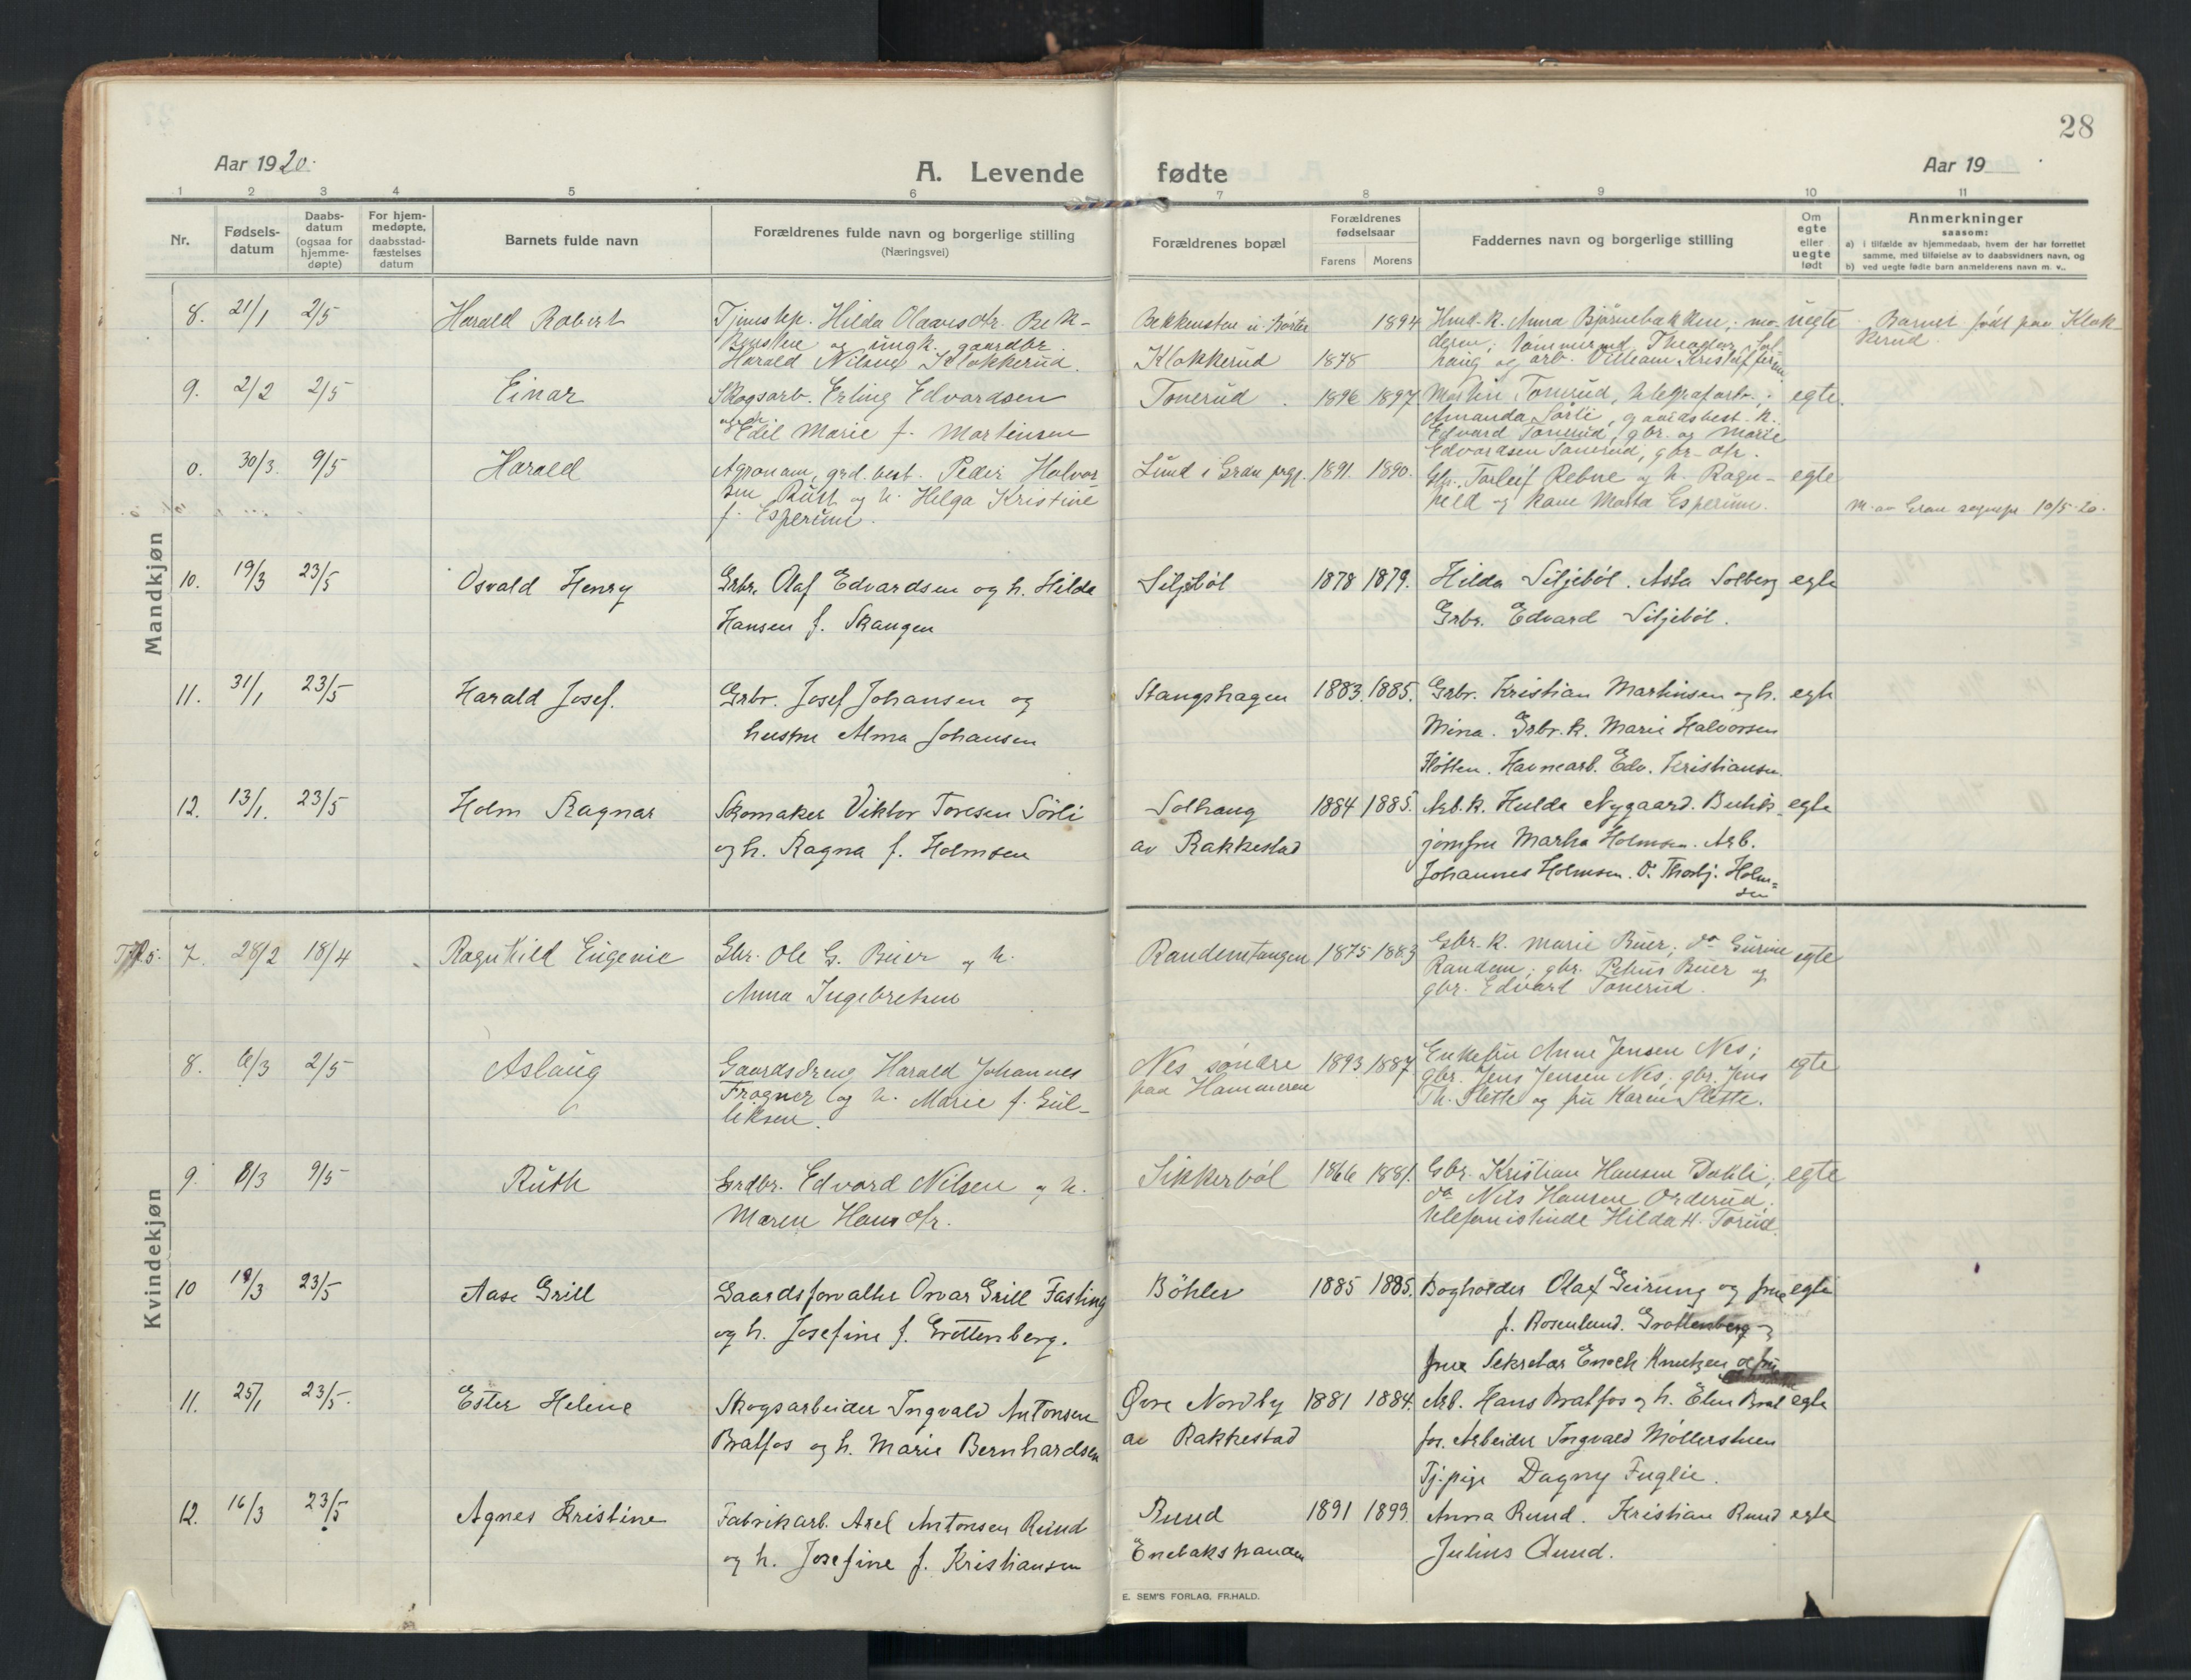 28
Aar 1920.
A. Levende fødte
Aar 19
1 2 3 4 5 6 7 8 9 10 11
Nr.
Fødsels-
datum
Daabs-
datum
(ogsaa for
hjemme-
døpte)
For hjem-
medøpte,
daabsstad-
fæstelses
datum
Barnets fulde navn
Forældrenes fulde navn og borgerlige stilling
(Næringsvei)
Forældrenes bopæl
Forældrenes
fødselsaar
Farens Morens
Faddernes navn og borgerlige stilling
Om
egte
eller
uegte
født
Anmerkninger
saasom:
a) i tilfælde av hjemmedaab, hvem der har forrettet
samme, med tilføielse av to daabsvidners navn, og
b) ved uegte fødte barn anmelderens navn m. v..
Mandkjøn
8. 21/1 2/5 Harald Robert
Tjenestep. Hilda Olavesdtr. Bek-
kensten og ungk. gaardbr.
Harald Nilsen Klokkerud.
Bekkensten
Klokkerud 1878 1894
Hmd.k. Anna Bjørnebakken; mo-
deren; tømmermd. Theodor Sol-
haug og arb. Villeam Kristoffersen
uegte
Barnet født paa Klok-
kerud.
9. 2/2 2/5 Einar
Skogsarb. Erling Edvardsen
og h. Edel Marie f. Martinsen
Tonerud. 1896 1897
Martin Tonerud, telegrafarb.;
Amanda Sørli, gaardsbest. k.
Edvard Tonerud, gbr. og Marie
Edvardsen Tonerud, gbr-dtr.
egte.
0. 30/3. 9/5 Harald
Agronom, grd. best. Peder Halvor
sen Rust og h. Helga Kristine
f. Esperum.
Lund i Gran prgj. 1891. 1890.
Gbr. Torleif Rebne og h. Ragn-
hild og kone Marta Esperum.
egte
M. av Gran sognepr 10/5-20.
10. 19/3 23/5 Osvald Henry
Grbr. Olaf Edvardsen og h. Hilda
Hansen f. Skaugen
Siljebøl 1878 1879.
Hilda Siljebøl. Asta Solberg
Grbr. Edvard Siljebøl.
egte
11. 31/1 23/5 Harald Josef.
Grbr. Josef Johansen og
hustru Alma Johansen
Stangshagen 1883. 1885.
Grbr. Kristian Martinsen og h.
Mina. Grbr. k. Marie Halvorsen
Fløtten. Havnearb. Edv. Kristiansen.
egte
12. 13/1. 23/5 Holm Ragnar
Skomaker Viktor Toresen Sørli
og h. Ragna f. Holmsen
Solhaug
av Rakkestad
1884 1885.
Arb. k. Hulda Nygaard. Butik-
jomfru Martha Holmsen. Arb.
Johannes Holmsen. Do Thorbj. Holm=
sen
egte
Kvindekjøn
7. 28/2 18/4 Ragnhild Eugenie
Gbr. Ole G. Buer og h.
Anna Ingebretsen
Randemtangen 1875 1883
Gbr. k. Marie Buer; do Gurine
Randem; gbr. Petrus Buer og
gbr. Edvard Tonerud.
egte
8. 6/3 2/5 Aslaug
Gaardsdreng Harald Johannes
Frogner og h. Marie f. Gul-
liksen.
Nes søndre
paa Hammeren
1893 1887
Enkefru Anne Jensen Nes;
gbr. Jens Jensen Nes; gbr. Jens
Th. Slette og fru Karen Slette.
egte
9. 8/3 9/5 Ruth
Grdbr. Edvard Nilsen og h.
Maren Hansdtr.
Sikkerbøl 1866 1881.
Gbr. Kristian Hansen Dahli;
do Nils Hansen Orderud;
telefonistinde Hilda H. Torud.
egte
10 18/3 23/5 Aase Grill
Gaardsforvalter Orvar Grill Fasting
og h. Josefine f. Grøttenberg.
Bøhler 1885 1885.
Bogholder Olaf Geirung og frue
f. Rosenlund. Grøttenberg og
frue Sekretær Enoch Knutzen
egte
11. 25/1 23/5. Ester Helene
Skogsarbeider Ingvald Antonsen
Bratfos og h. Marie Bernhardsen
Øvre Nordby
av Rakkestad
1881 1884.
Arb. Hans Bratfos og h. Elen Brat
fos. Arbeider Ingvald Møllerstuen
Tj.pige Dagny Fuglie.
egte
12. 16/3 23/5 Agnes Kristine
Fabrikarb. Axel Antonsen Rund
og h. Josefine f. Kristiansen
Rund
Enebakstranden
1891 1899.
Anna Rund. Kristian Rund
Julius Rund.
egte
E. SEM'S FORLAG, FR.HALD.